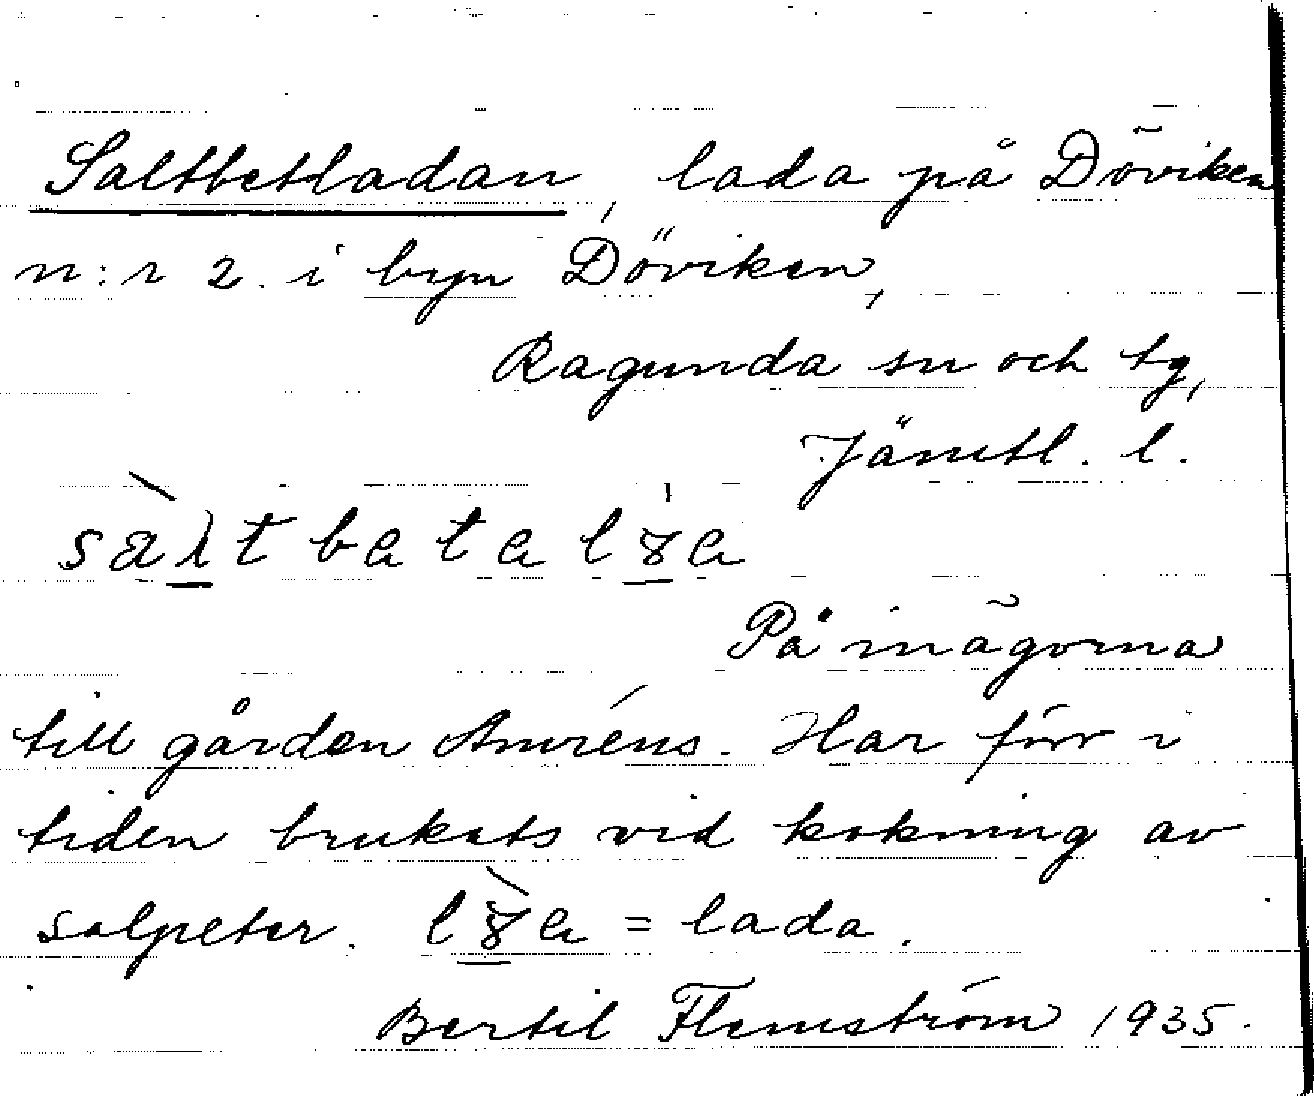 Saltbetladan, lada på Döviken
n:r 2. i byn Döviken,
Ragunda sn och tg,
Jämtl. l.
På inägorna
till gården Amréns. Har förr i
tiden brukats vid kokning av
salpeter. = lada.
Bertil Flemström 1935.